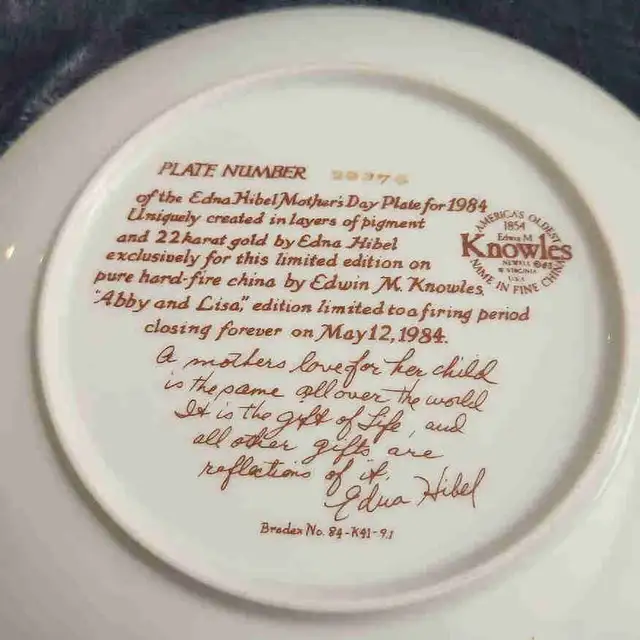 PLATE NUMBER
of the Edna Hibel Mother's Day Plate for 1984
Uniquely created in layers of pigment
and 22 karat gold by Edna Hibel
exclusively for this limited edition on
pure hard-fire china by Edwin M. Knowles.
"Abby and Lisa," edition limited to a firing period
closing forever on May 12, 1984.
AMERICA'S OLDEST
1854
Edwin M.
Knowles
NEWELL
W VIRGINIA
U.S.A.
NAME IN FINE CHINA
A mothers love for her child
is the same all over the world
It is the gift of Life, and
all other gifts are
reflections of it.
Edna Hibel
Bradex No. 84-K41-9.1